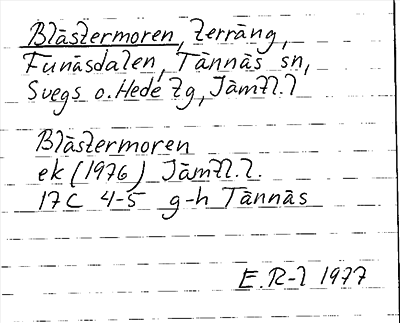 Blästermoren, terräng,
Funäsdalen, Tännäs sn,
Svegs o. Hede tg, Jämtl. l
Blästermoren
ek (1976) Jämtl. l.
17C 4-5 g-h Tännäs
E.R-l 1977